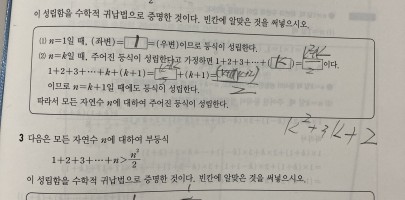 이 성립함을 수학적 귀납법으로 증명한 것이다. 빈칸에 알맞은 것을 써넣으시오.
(1) n=1일 때, (좌변)=1=(우변)이므로 등식이 성립한다.
(2) n=k일 때, 주어진 등식이 성립한다고 가정하면 1+2+3+⋯+k=(k²+k)/2이다.
1+2+3+⋯+k+(k+1)=(k²+k)/2+(k+1)=(k+1)(k+2)/2
이므로 n=k+1일 때에도 등식이 성립한다.
따라서 모든 자연수 n에 대하여 주어진 등식이 성립한다.
k²+3k+2
3 다음은 모든 자연수 n에 대하여 부등식
1+2+3+⋯+n>n²/2
이 성립함을 수학적 귀납법으로 증명한 것이다. 빈칸에 알맞은 것을 써넣으시오.